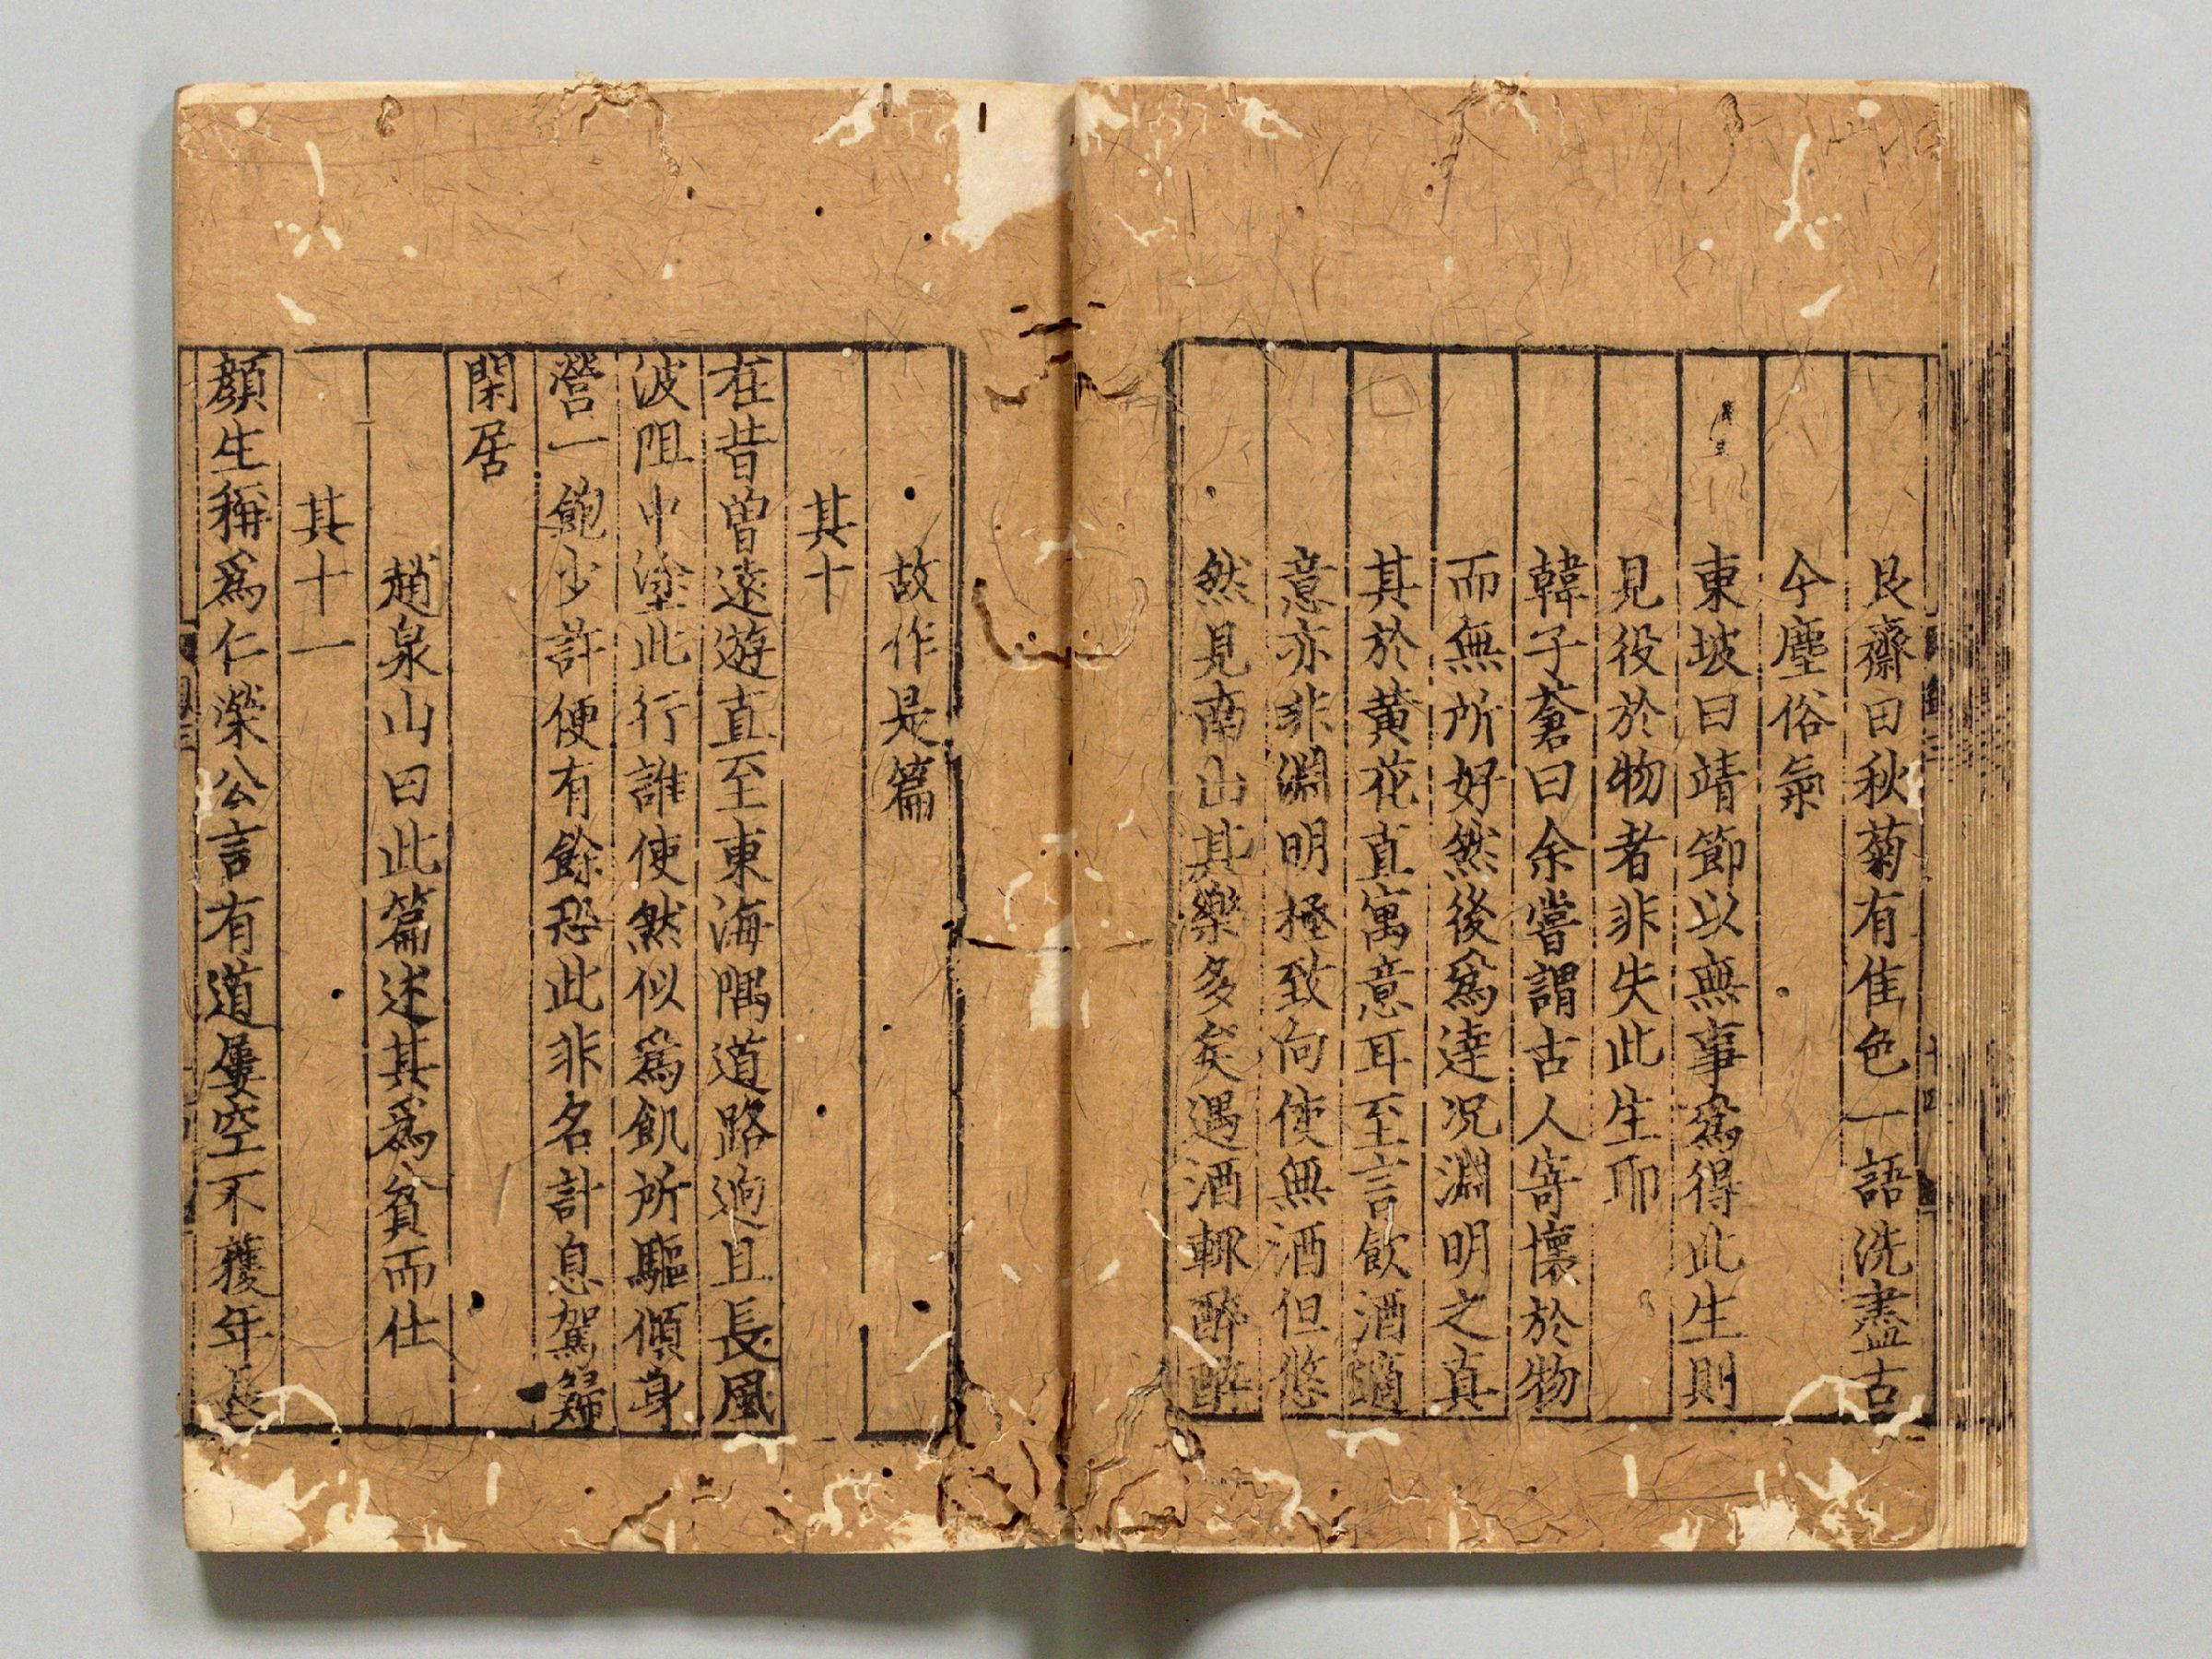 艮齋曰秋菊有佳色一語洗盡古
今塵俗氣
東坡曰靖節以無事爲得此生則
見役於物者非失此生耶
韓子蒼曰余嘗謂古人寄懷於物
而無所好然後爲達况淵明之真
其於黄花直寓意耳至言飲酒適
意亦非淵明極致向使無酒但悠
然見南山其樂多矣遇酒輙醉醉
故作是篇
其十
在昔曽遠遊直至東海隅道路逈且長風
波阻中塗此行誰使然似爲飢所驅傾身
營一飽少許便有餘恐此非名計息駕歸
閑居
趙泉山曰此篇述其爲貧而仕
其十一
顔生稱爲仁榮公言有道屢空不獲年長